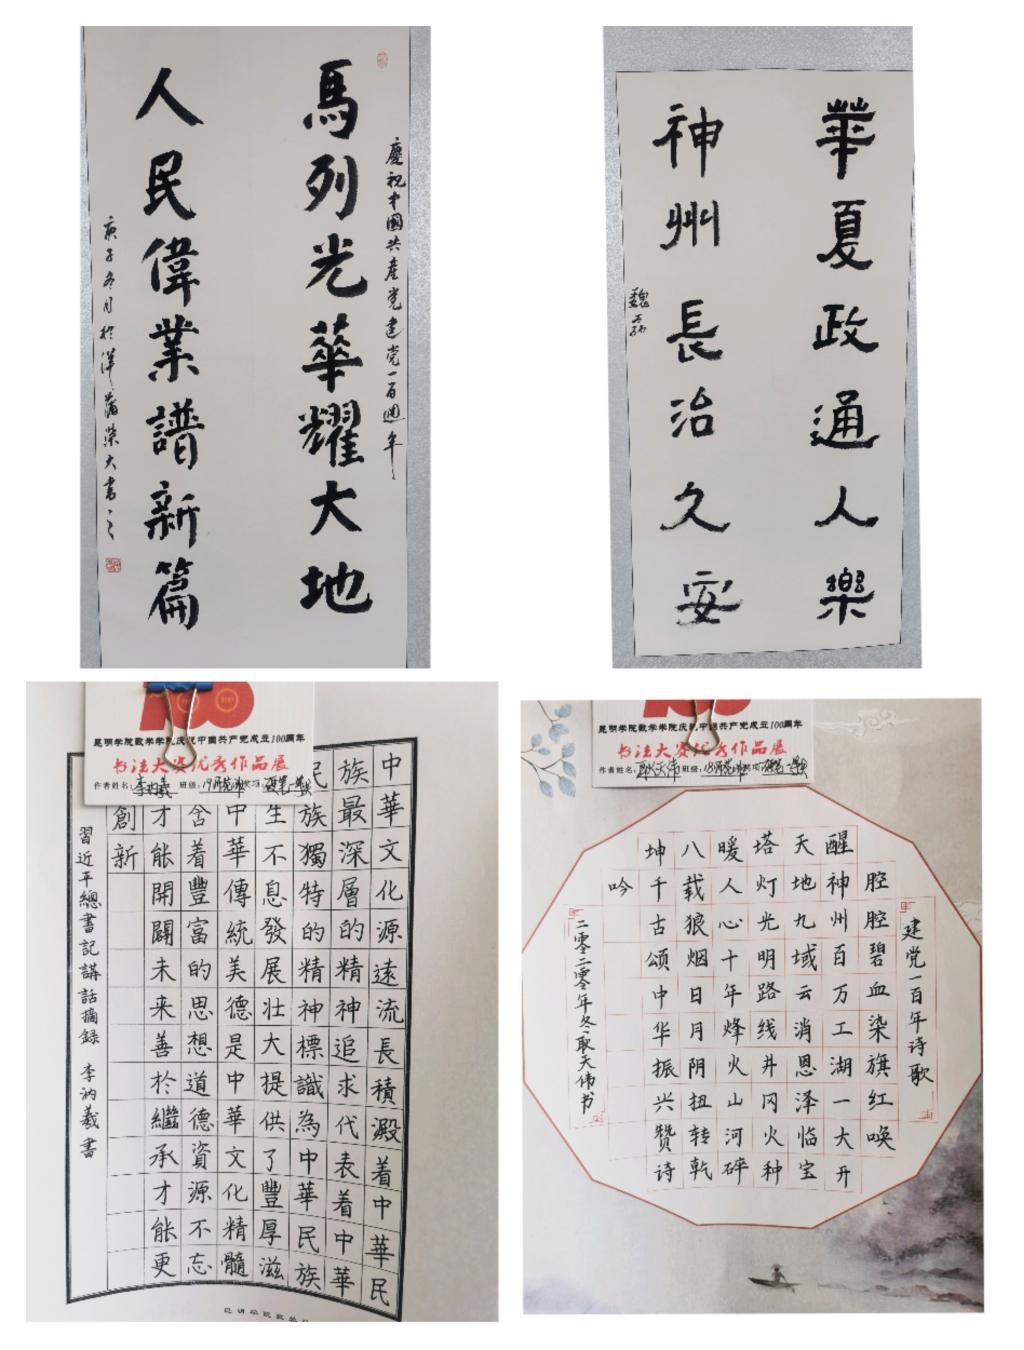 慶祝中國共產党建党一百週年
馬列光華耀大地
人民偉業譜新篇
庚子冬月於洋蒲榮大書
華夏政通人樂
神州長治久安
魏
100
昆明学院数学学院庆祝中国共产党成立100周年
书法大赛优秀作品展
作者姓名:李汭羲 班级:19 奖项:
中華文化源遠流長積澱着中華民
族最深層的精神追求代表着中華
民族獨特的精神標識為中華民族
生不息發展壯大提供了豐厚滋
中華傳統美德是中華文化精髓
含着豐富的思想道德資源不忘
才能開闢未来善於繼承才能更
創新
習近平總書記講話摘録 李汭羲書
昆明学院数学学院庆祝中国共产党成立100周年
书法大赛优秀作品展
作者姓名:耿天伟 班级:18 奖项:
建党一百年诗歌
腔腔碧血染旗红唤
醒神州百万工湖一大开
天地九域云消恩泽临宝
塔灯光明路线井冈火种
暖人心十年烽火山河碎
八载狼烟日月阴扭转乾
坤千古颂中华振兴赞诗
吟
二零二零年冬耿天伟书